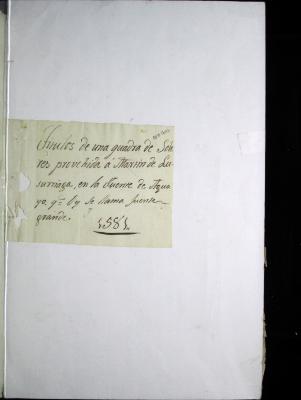 Titulos de una quadra de Sola
res provehida á Martin de Lu
surriaga, en la Fuente de Agua
ya q.e oy se llama fuente
grande.
1581.